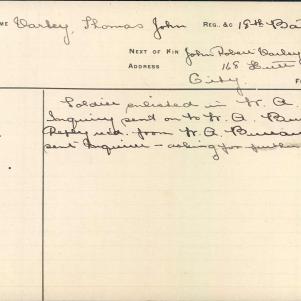 ME Varley, Thomas John REG., &C 18th Ba
NEXT OF KIN John Robert Varley
ADDRESS 168
City
F
Soldier enlisted in W. A.
Inquiry sent on to W. A. Bur
Reply recd. from W. A. Bureau
sent Inquirer – asking for further